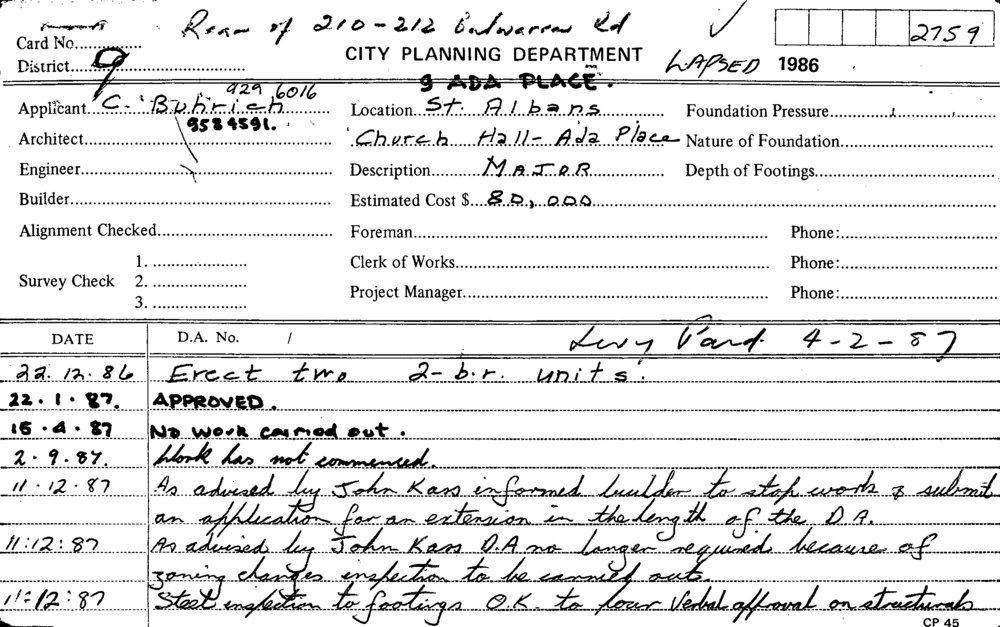 Rear of 210-212 Bulwarra Rd ✓ 2759
Card No.
CITY PLANNING DEPARTMENT LAPSED 1986
District 9
9 ADA PLACE.
929 6016
Applicant C. Buhrich Location St. Albans Foundation Pressure
9584591.
Architect Church Hall - Ada Place Nature of Foundation
Engineer Description MAJOR Depth of Footings
Builder Estimated Cost $ 80,000
Alignment Checked Foreman Phone:
Survey Check 1. 2. 3.
Clerk of Works Phone:
Project Manager Phone:
DATE D.A. No. / Levy Paid. 4-2-87
22.12.86 Erect two 2-b.r. units.
22.1.87. APPROVED.
15.4.87 No work carried out.
2.9.87. Work has not commenced.
11.12.87 As advised by John Kass informed builder to stop work & submit
an application for an extension in the length of the D.A.
11:12:87 As advised by John Kass D.A no longer required because of
zoning changes inspection to be carried out.
11:12:87 Steel inspection to footings O.K. to pour Verbal approval on structurals
CP 45